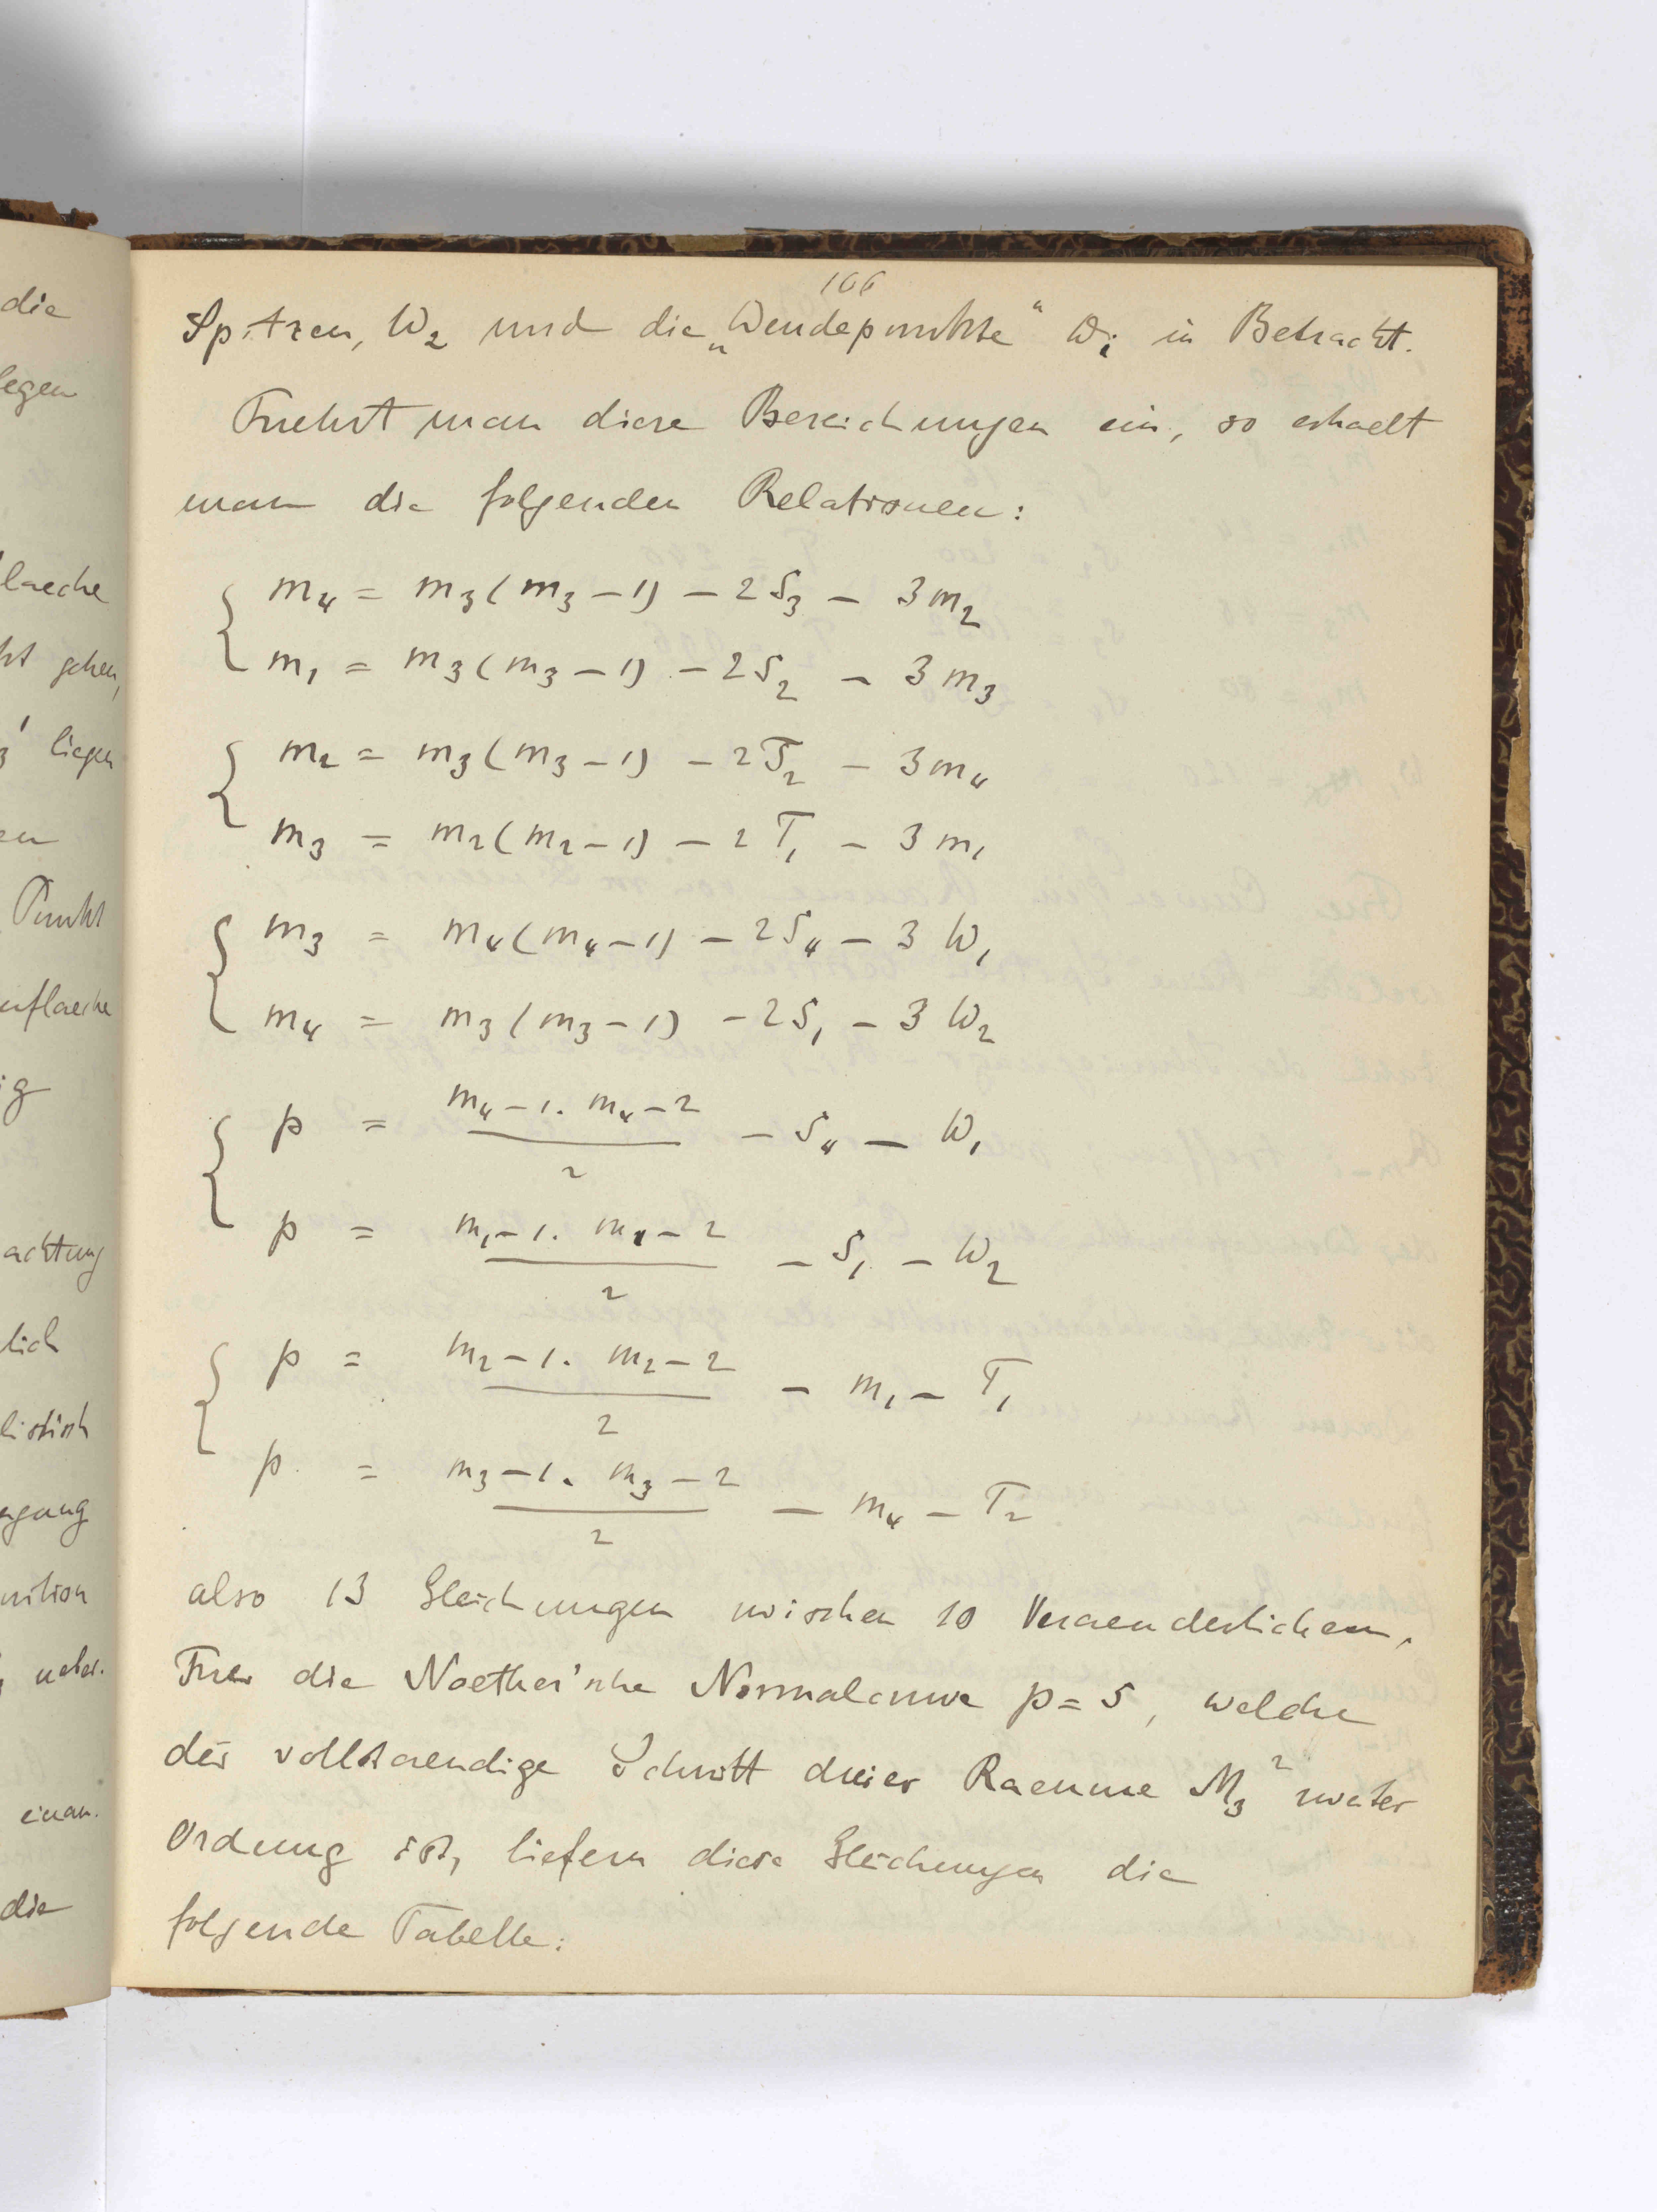 die
legen
laeche
ht gehen,
3' liegen
en
Punkt
enflaeche
ig
achtung
lich
listisch
ergang
nition
, ueber-
einan-
die
166
Spitzen, W₂ und die „Wendepunkte“ W₁ in Betracht.
Fuehrt man diese Bezeichnungen ein, so erhaelt
man die folgenden Relationen:
m₄ = m₃(m₃-1) - 2S₃ - 3m₂
m₁ = m₃(m₃-1) - 2S₂ - 3m₃
m₂ = m₃(m₃-1) - 2T₂ - 3m₄
m₃ = m₂(m₂-1) - 2T₁ - 3m₁
m₃ = m₄(m₄-1) - 2S₄ - 3W₁
m₄ = m₃(m₃-1) - 2S₁ - 3W₂
p = (m₄-1. m₄-2)/2 - S₄ - W₁
p = (m₁-1. m₁-2)/2 - S₁ - W₂
p = (m₂-1. m₂-2)/2 - m₁ - T₁
p = (m₃-1. m₃-2)/2 - m₄ - T₂
also 13 Gleichungen zwischen 10 Veraenderlichen.
Fuer die Noether'sche Normalcurve p=5, welche
der vollstaendige Schnitt dreier Raeume M₃² zweiter
Ordnung ist, liefern diese Gleichungen die
folgende Tabelle: